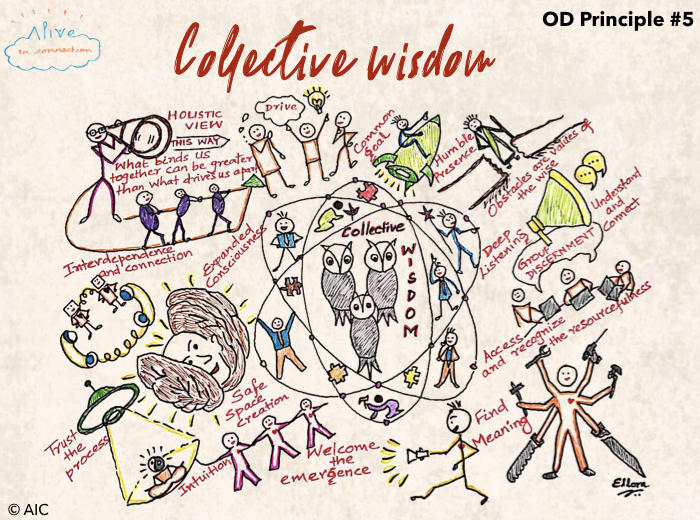 Alive
in connection
OD Principle #5
Collective wisdom
HOLISTIC
VIEW
THIS WAY
What binds us
together can be greater
than what drives us apart
Drive
Common
Goal
Humble
Presence
Obstacles are values of
the wise
Understand
and
Connect
Interdependence
and connection
Expanded
consciousness
Collective
WISDOM
Deep
Listening
Group
DISCERNMENT
Access
and recognize
the resourcefulness
Safe
space
creation
Trust
the
process
Intuition
Welcome
the
emergence
Find
Meaning
Ellora
© AIC